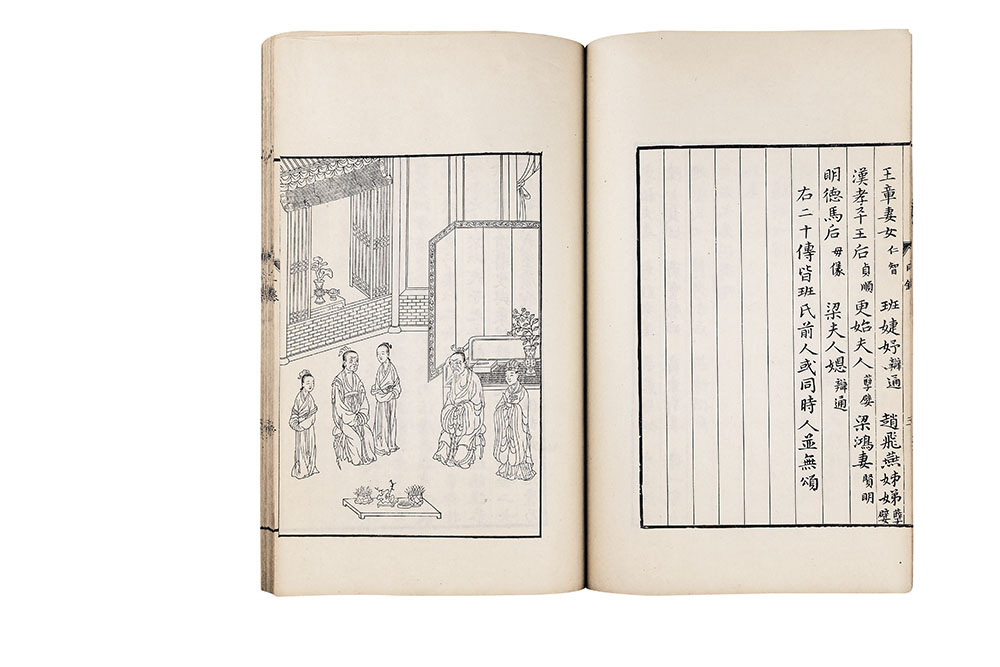 王章妻女 仁智 班婕妤 辯通 趙飛燕姊娣 孽嬖
漢孝平王后 貞順 更始夫人 孽嬖 梁鴻妻 賢明
明德馬后 母儀 梁夫人嫕 辯通
右二十傳皆班氏前人或同時人並無頌